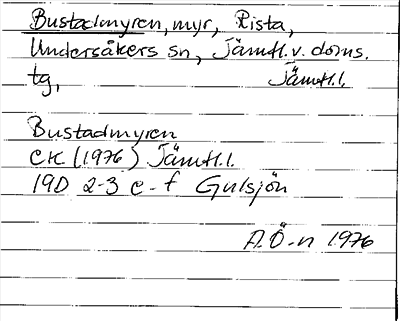 Bustadmyren, myr, Rista,
Undersåkers sn, Jämtl. v. doms.
tg, Jämtl. l.
Bustadmyren
EK (1976) Jämtl. l.
19D 2-3 e-f Gulsjön
A.Ö-n 1976